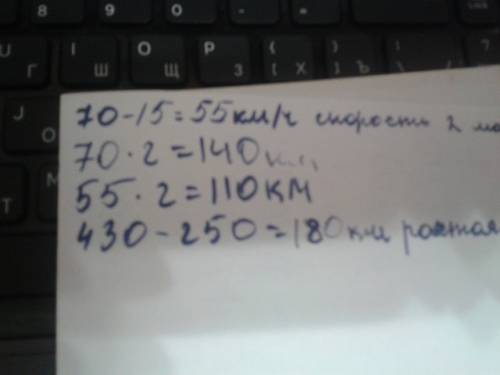 8 9 0 - =
U I O P { }
Г Ш Щ З [ Х ] Ъ
J
О
М
Т
70-15=55км/ч скорость 2
70·2=140км
55·2=110км
430-250=180км